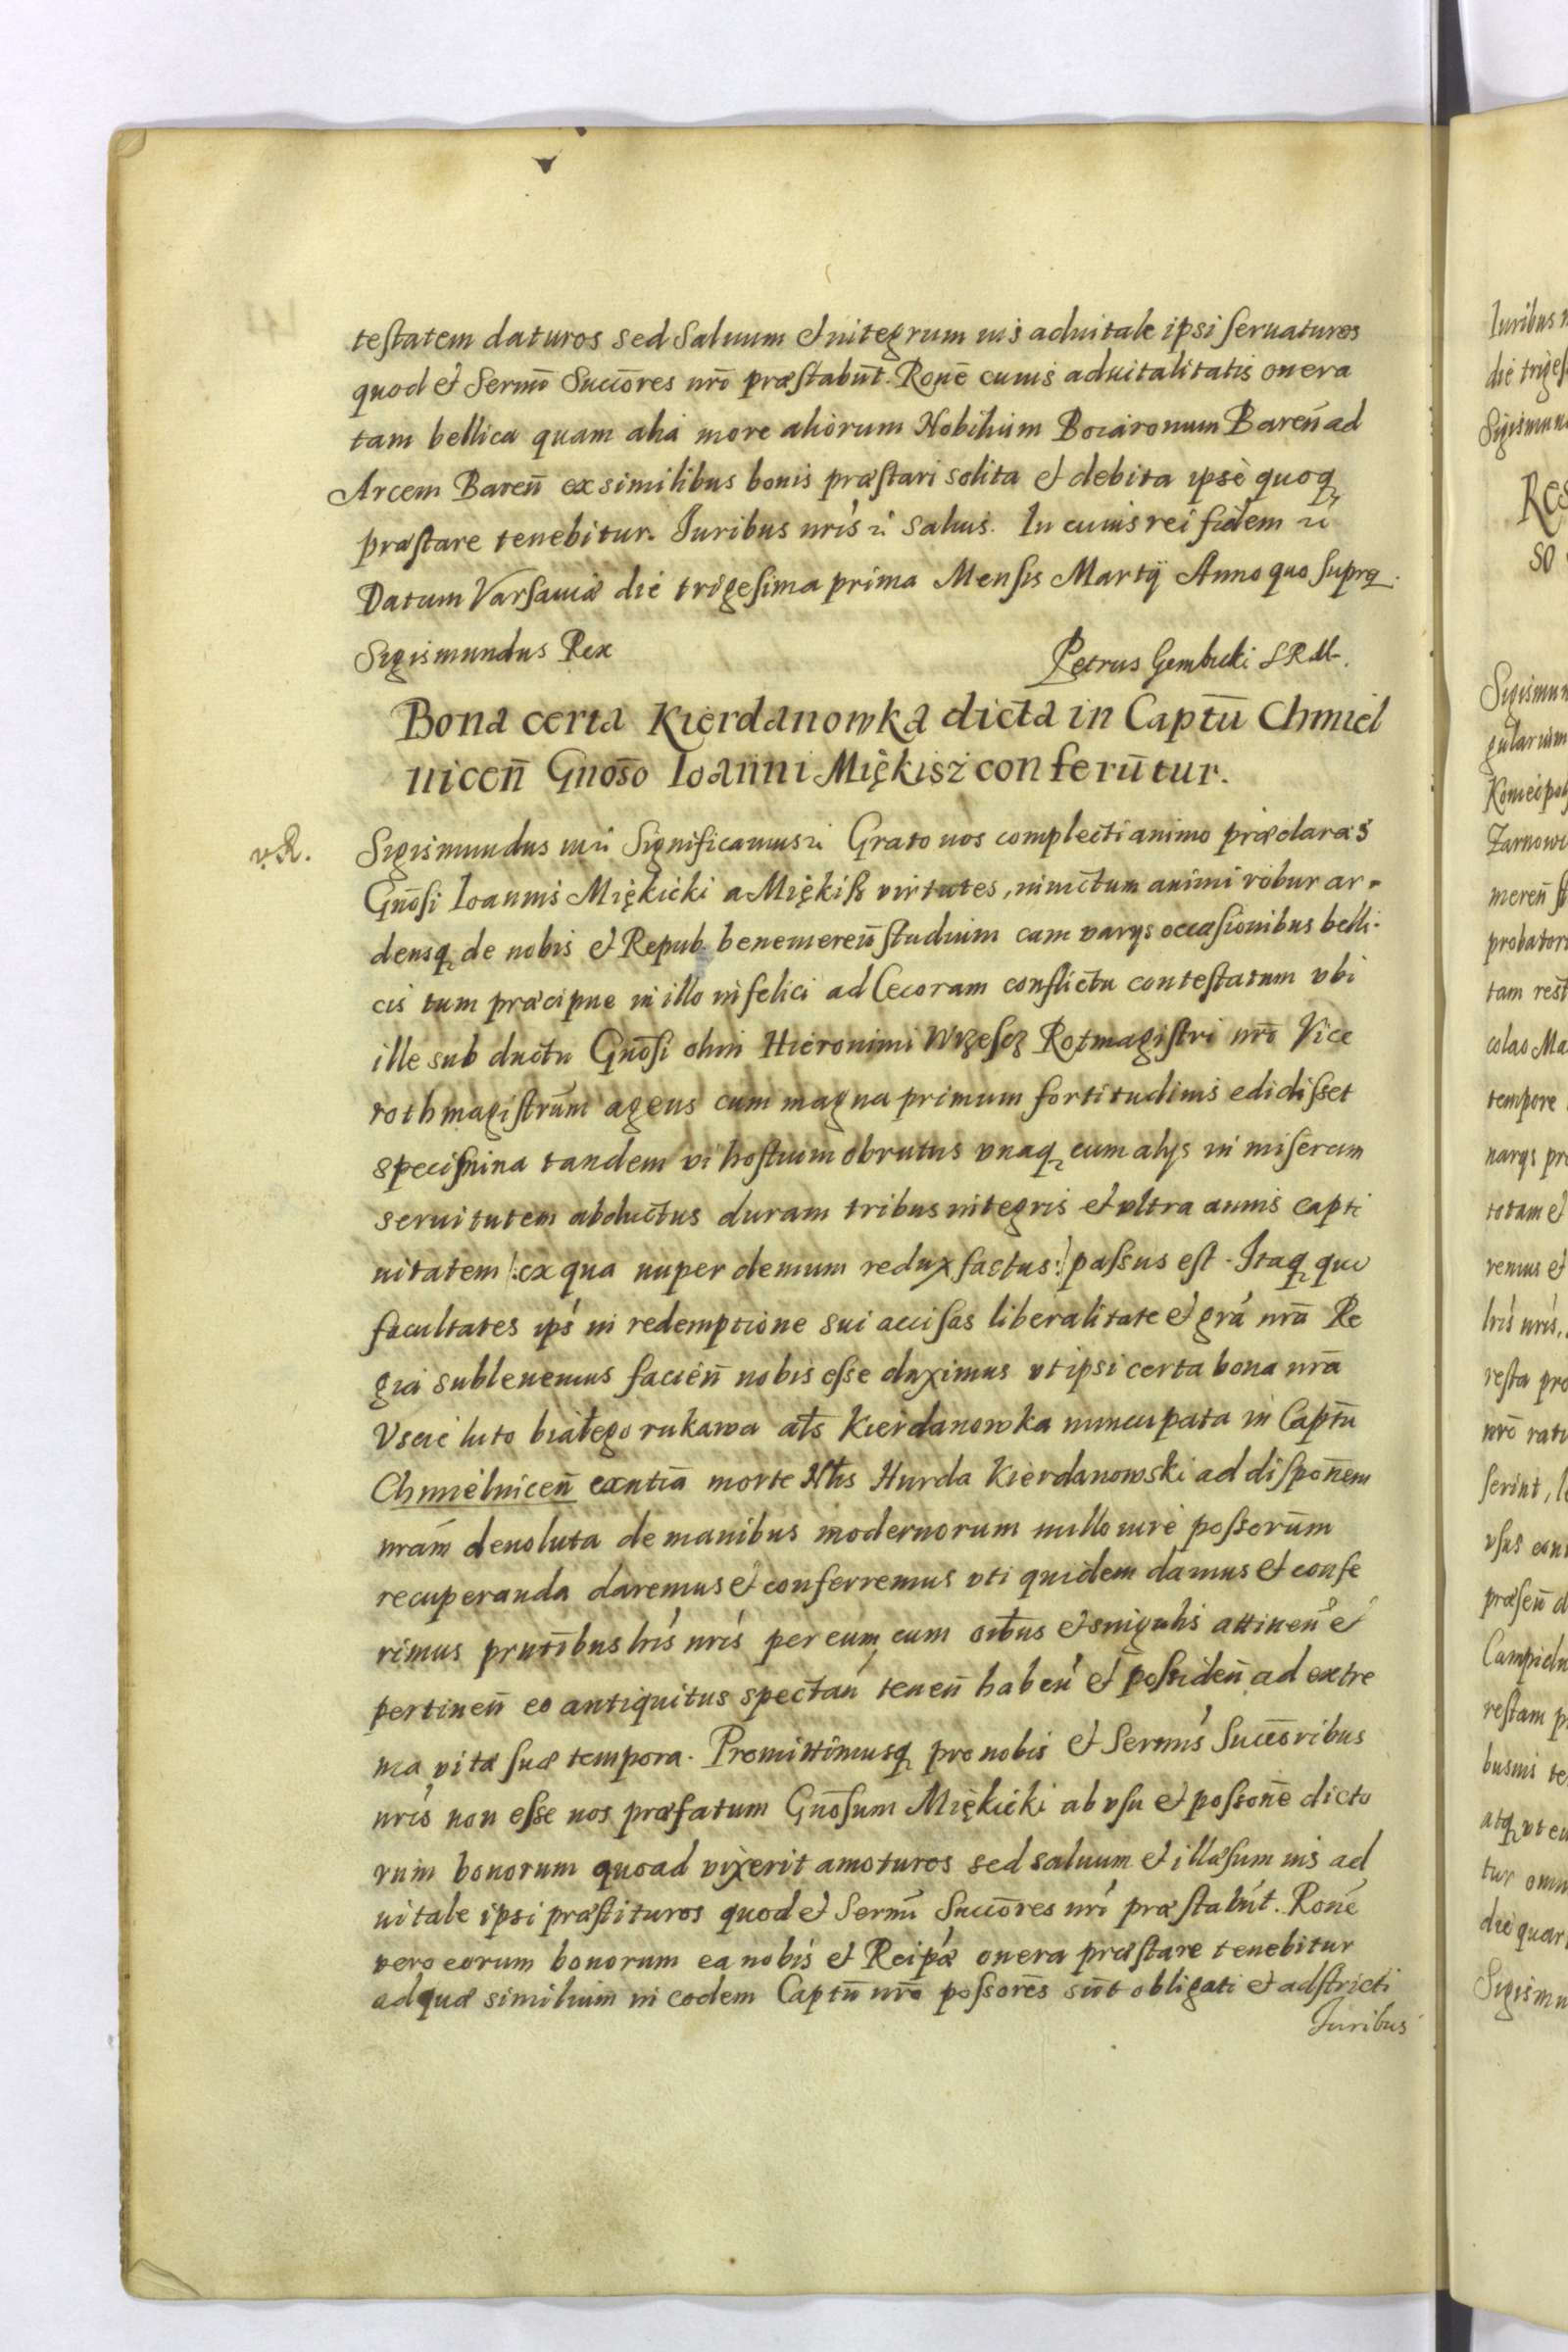 testatem daturos sed Saluum et integrum ius aduitale ipsi seruaturos
quod et Sermi Succores nri præstabunt. Rone cuius aduitalitatis onera
tam bellica quam alia more aliorum Nobilium Boiaronum Baren ad
Arcem Baren ex similibus bonis præstari solita et debita ipse quoq
præstare tenebitur. Juribus nris salius. In cuius rei fidem
Datum Varsauiæ die trigesima prima Mensis Martij Anno quo supra.
Sigismundus Rex
Petrus Gembicki S R M.
Bona certa Kierdanowka dicta in Captu Chmiel
nicen Gnoso Ioanni Miękisz conferutur.
v. R.
Sigismundus Significamus Grato nos complecti animo præclaras
Gnosi Ioannis Miękicki a Miękiß virtutes, inuictum animi robur ar-
densq de nobis et Repub benemeren studium cum varijs occasionibus belli-
cis tum præcipue in illo infelici ad Cecoram conflictu contestatum vbi
ille sub ductu Gnosi olim Hieronimi Wrzescz Rotmagistri nri Vice
rothmagistrum agens cum magna primum fortitudinis edidisset
specimina tandem vi hostium obrutus vnaq cum alijs in miseram
seruitutem abductus duram tribus integris et vltra annis capti
uitatem /: ex qua nuper demum redux factus :/ passus est. Itaq quo
facultates ips in redemptione sui accisas liberalitate et gra nra Re
gia subleuemus facien nobis esse duximus vt ipsi certa bona nra
Vscie luto białego rukawa als Kierdanowka nuncupata in Captu
Chmielnicen exntia morte Nlis Hurda Kierdanowski ad disponem
nram deuoluta de manibus modernorum nullo iure possorum
recuperanda daremus et conferremus vti quidem damus et confe
rimus prntibus lris nris per eum cum oibus et singulis attinen et
pertinen eo antiquitus spectan tenen haben et possiden ad extre
ma vitæ suæ tempora. Promittimusq pro nobis et Sermis Succoribus
nris non esse nos præfatum Gnosum Miękicki ab vsu et possone dicto
rum bonorum quoad vixerit amoturos sed saluum et illæsum ius ad
uitale ipsi præstituros quod et Sermi Succores nri præstabut. Rone
vero eorum bonorum ea nobis et Reipæ onera præstare tenebitur
ad quæ similium in eodem Captu nro possores sut obligati et adstricti
Juribus